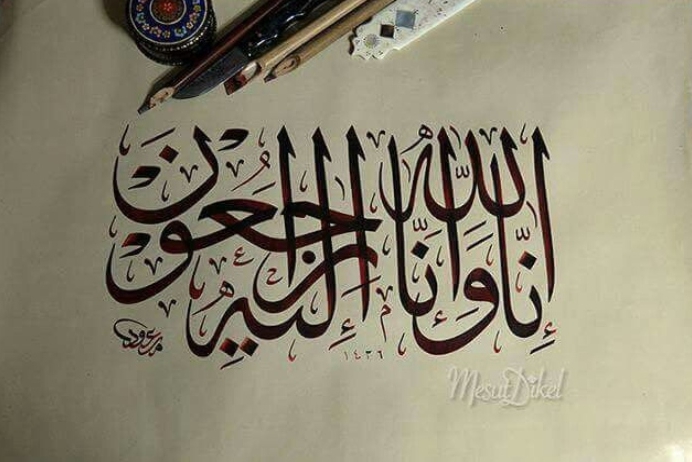 إِنَّا لِلّٰهِ وَإِنَّا إِلَيْهِ رَاجِعُونَ
١٤٣٦
MesutDikel